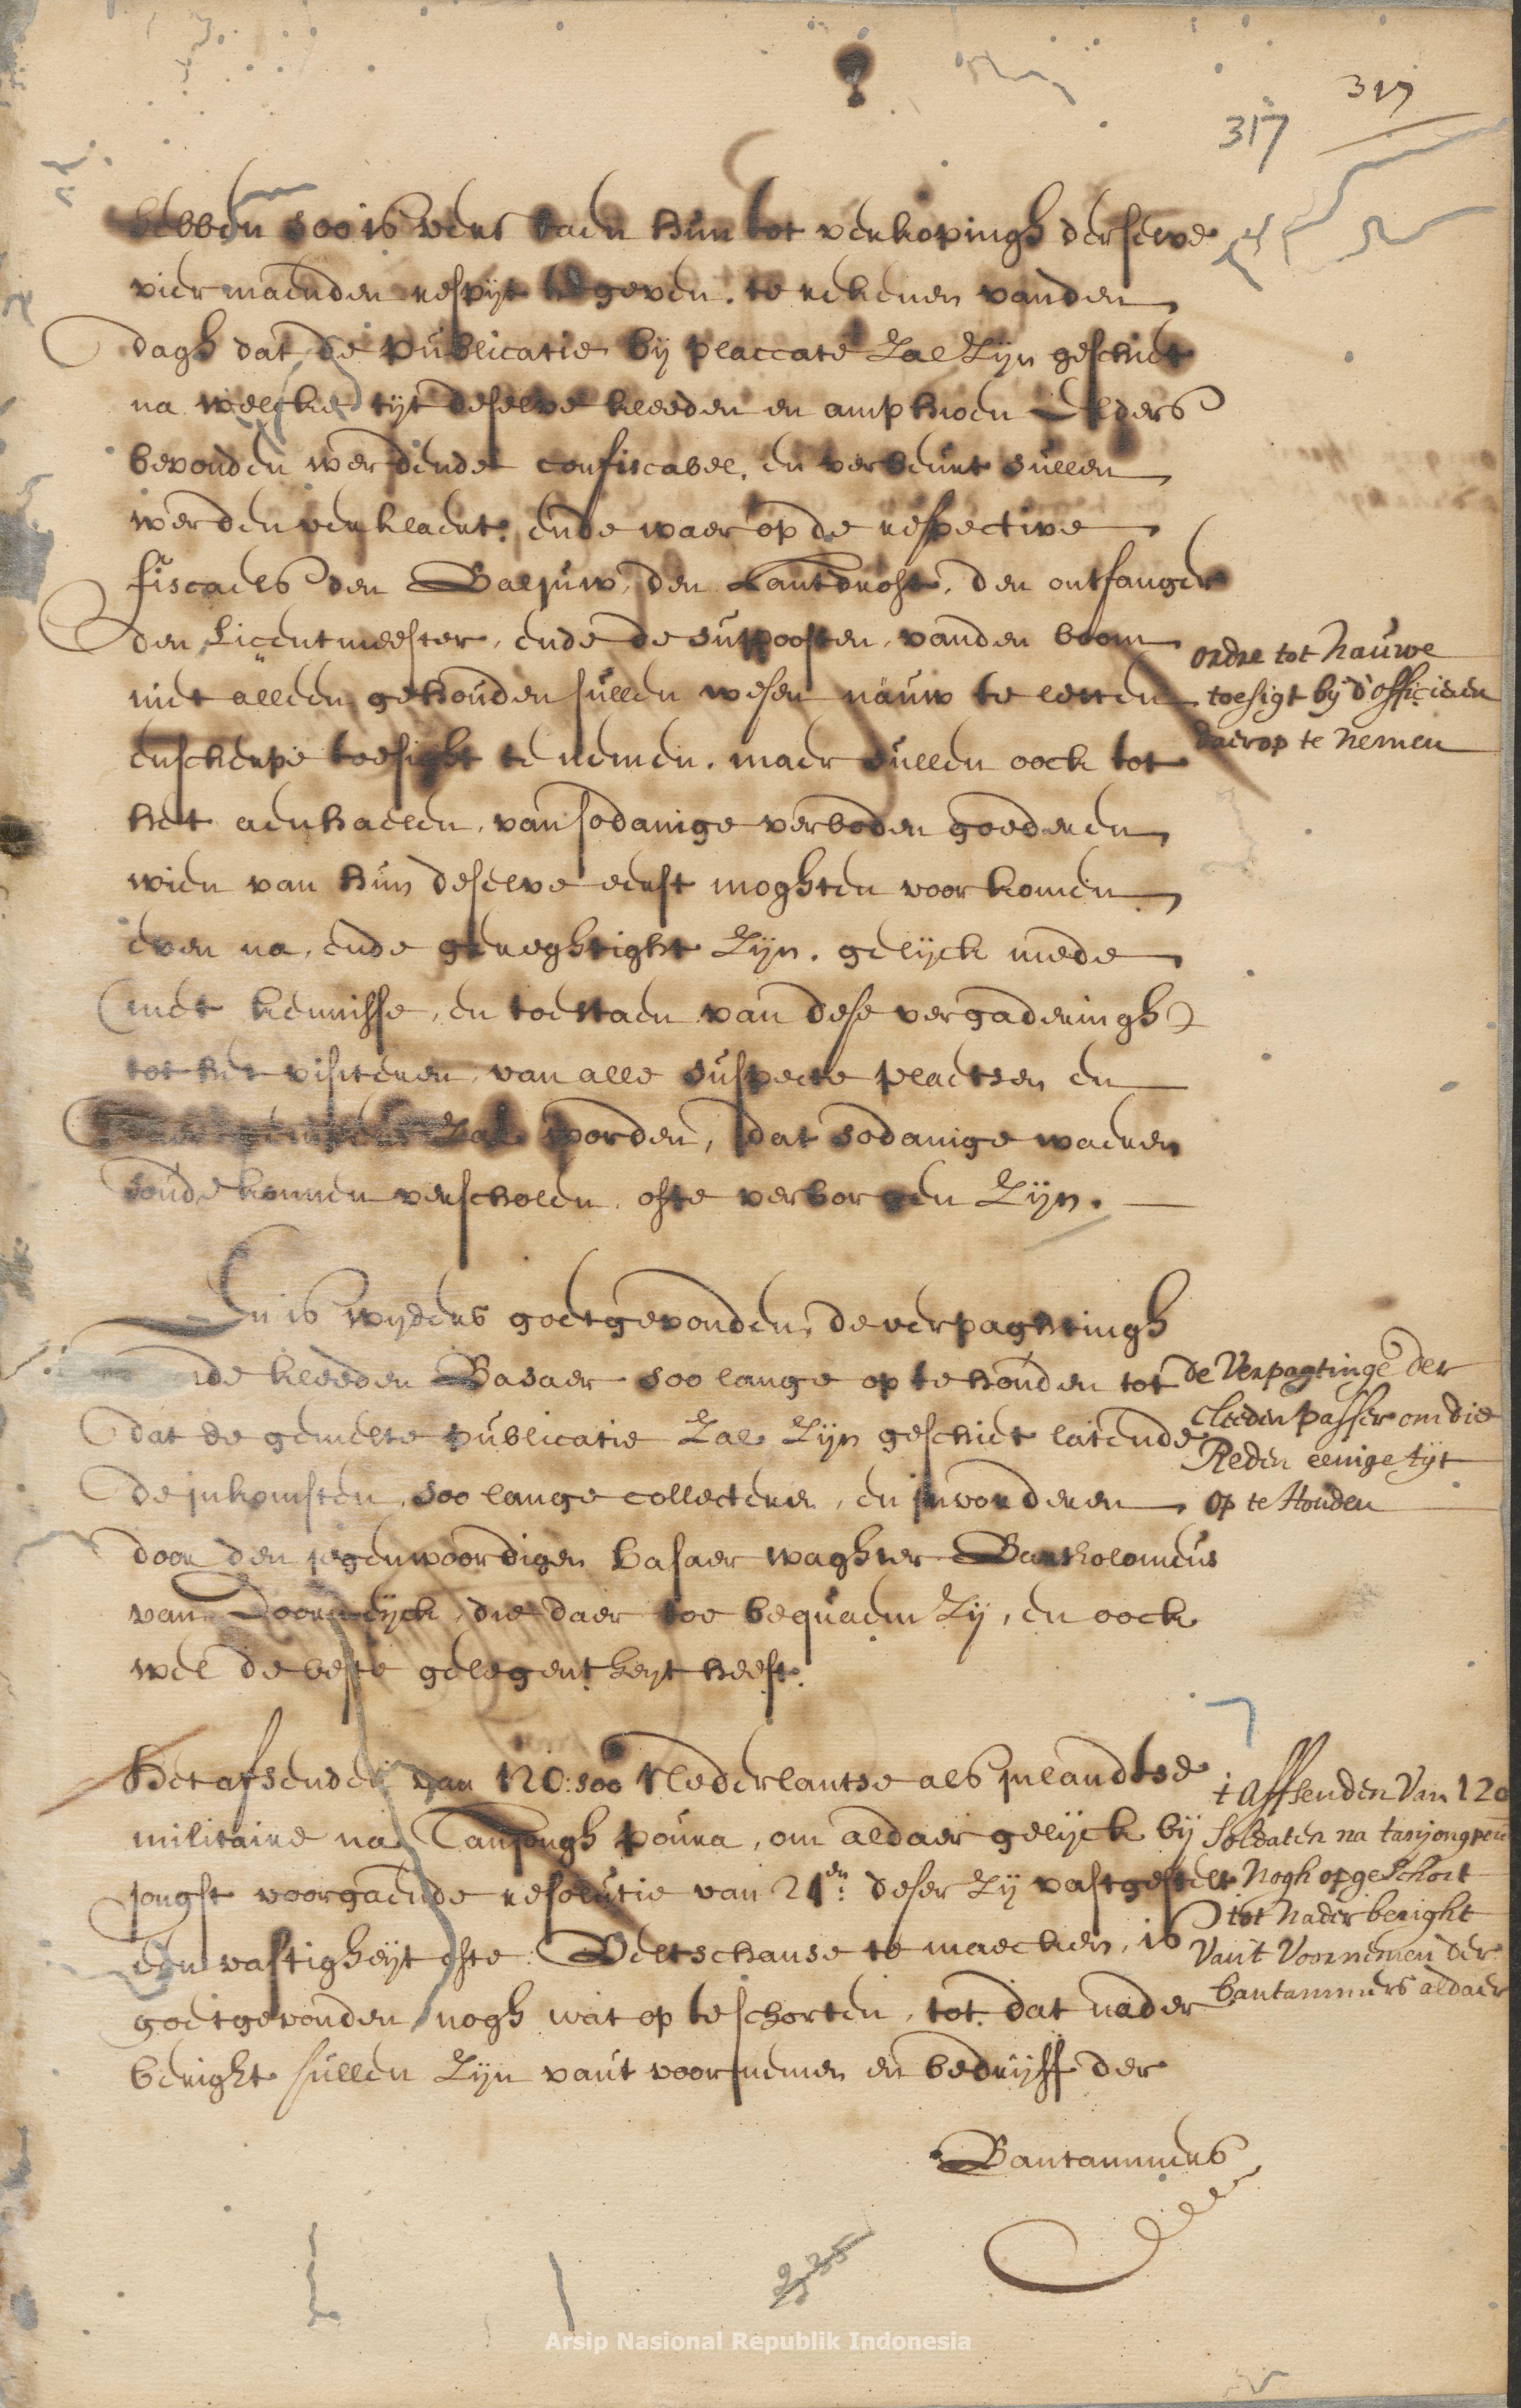 317
317
hebben soo is verstaen hun tot verkopingh derselve
vier maenden respijt te geven. te rekenen vanden
dagh dat de publicatie bij placcate zal zijn geschiet
na welcke tijt deselve kleeden en amphioen elders
bevonden werdende confiscabel, en verbeurt sullen
werden verklaert. ende waer op de respective
fiscaels den Baljuw, den Lantdrost, den ontfanger
den Licentmeester, ende de suppoosten, vanden boom
niet alleen gehouden sullen wesen nauw te letten
en scherpe toesight te nemen. maer sullen oock tot
het aenhaelen, van sodanige verboden goederen
wien van hun deselve eerst moghten voorkomen
even na, ende gereghtight zijn. gelijck mede
(met kennisse, en toestaen van dese vergaderingh)
tot het visiteren, van alle suspecte plaetsen en
zal worden, dat sodanige waeren
soude konnen verscholen, ofte verborgen zijn.
ordre tot nauwe
toesigt bij d'officieren
daerop te nemen
En is wijders goetgevonden, de verpaghtingh
de kleeden Basaer soo lange op te houden tot
dat de gemelte publicatie zal zijn geschiet latende
de inkomsten, soo lange collecteren, en invorderen
door den jegenwoordigen basaer waghter Bartholomeus
van Doornijck, die daer toe bequaem zij, en oock
wel de beste gelegentheyt heeft.
de Verpagtinge der
cleeden passer om die
Reden eenige tijt
op te Houden
Het afsenden van 120: soo Nederlantse als inlandtse
militaire na Tanjongh poura, om aldaer gelijck bij
jongst voorgaende resolutie van 21en: deser zij vastgestelt
een vastigheijt ofte Veltschanse te maecken, is
goetgevonden nogh wat op te schorten, tot dat nader
beright sullen zijn van't voornemen en bedrijff der
Bantammers
't Affsenden Van 120
Soldaten na tanjongpou
Nogh opgeschort
tot nader beright
Van't Voornemen der
bantammers aldaer
235
Arsip Nasional Republik Indonesia